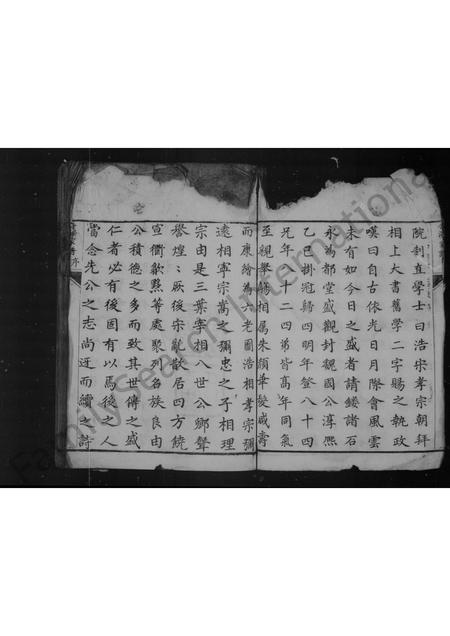 院制直學士曰浩宋孝宗朝拜
相上大書舊學二字賜之執政
嘆曰自古依光日月際會風雲
未有如今日之盛者請鋟諸石
永為都堂盛觀封魏國公淳熙
乙巳掛冠歸四明年登八十四
兄年八十二四弟皆高年同氣
至親舉觴相属朱顏華髮咸壽
而康繪為六老圖浩相孝宗彌
遠相寧宗嵩之彌忠之子相理
宗由是三葉宰相八世公卿聲
譽煌：厥後宋亂散居四方饒
宣衢歙黟等處聚列名族良由
公積德之多而致其世傳之盛
仁者必有後固有以焉後之人
當念先公之志尚迓而續之詩
FamilySearch International